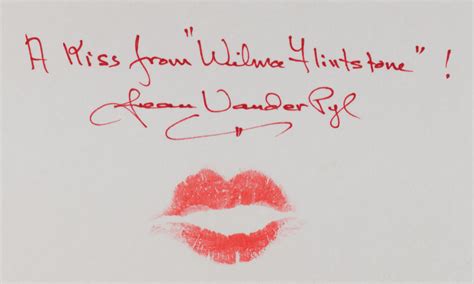 A Kiss from "Wilma Flintstone" !
Jean VanderPyl